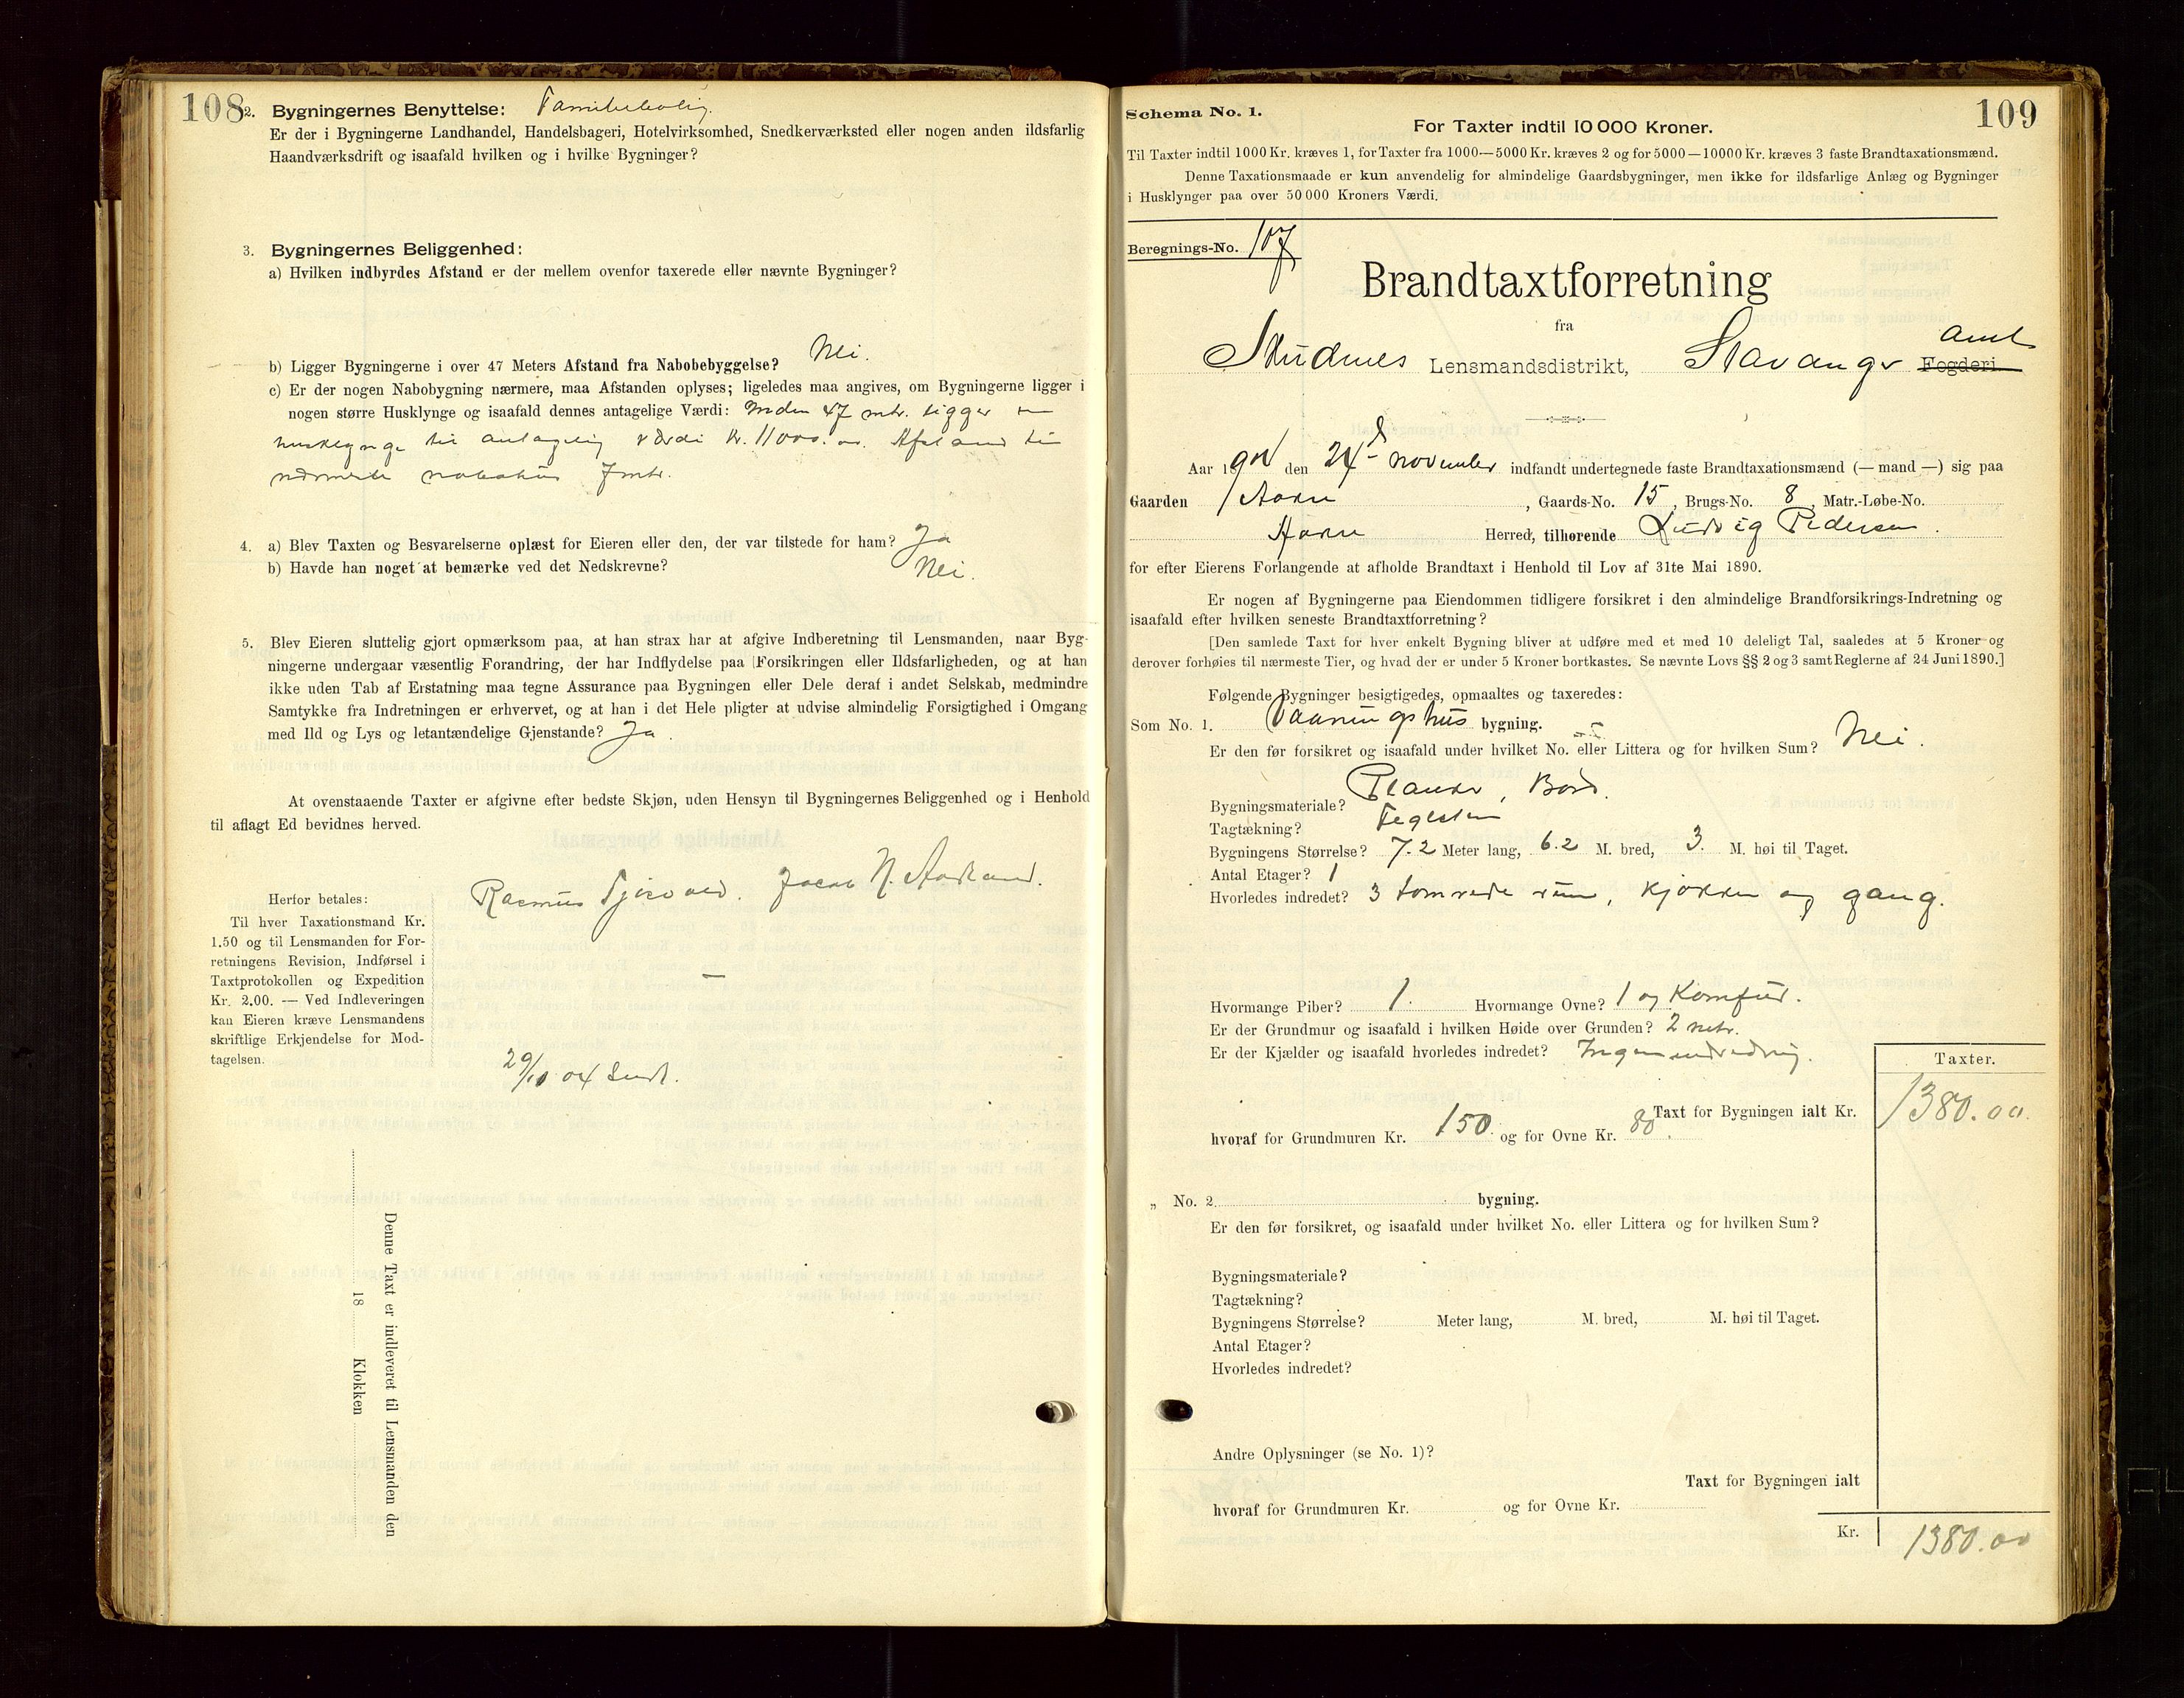 108
2. Bygningernes Benyttelse: Familiebolig.
Er der i Bygningerne Landhandel, Handelsbageri, Hotelvirksomhed, Snedkerværksted eller nogen anden ildsfarlig
Haandværksdrift og isaafald hvilken og i hvilke Bygninger?
3. Bygningernes Beliggenhed:
a) Hvilken indbyrdes Afstand er der mellem ovenfor taxerede eller nævnte Bygninger?
b) Ligger Bygningerne i over 47 Meters Afstand fra Nabobebyggelse? Nei.
c) Er der nogen Nabobygning nærmere, maa Afstanden oplyses; ligeledes maa angives, om Bygningerne ligger i
nogen større Husklynge og isaafald dennes antagelige Værdi: Inden 47 mtr. ligger en
husklynge til antagelig værdi kr. 11000.00. Afstand til
nærmeste nabohus 7 mtr.
4. a) Blev Taxten og Besvarelserne oplæst for Eieren eller den, der var tilstede for ham? Ja
b) Havde han noget at bemærke ved det Nedskrevne? Nei.
5. Blev Eieren sluttelig gjort opmærksom paa, at han strax har at afgive Indberetning til Lensmanden, naar Byg-
ningerne undergaar væsentlig Forandring, der har Indflydelse paa Forsikringen eller Ildsfarligheden, og at han
ikke uden Tab af Erstatning maa tegne Assurance paa Bygningen eller Dele deraf i andet Selskab, medmindre
Samtykke fra Indretningen er erhvervet, og at han i det Hele pligter at udvise almindelig Forsigtighed i Omgang
med Ild og Lys og letantændelige Gjenstande? Ja.
At ovenstaaende Taxter er afgivne efter bedste Skjøn, uden Hensyn til Bygningernes Beliggenhed og i Henhold
til aflagt Ed bevidnes herved.
Rasmus Tjösvold. Jacob N. Aadland.
Herfor betales:
Til hver Taxationsmand Kr.
1.50 og til Lensmanden for For-
retningens Revision, Indførsel i
Taxtprotokollen og Expedition
Kr. 2.00. — Ved Indleveringen
kan Eieren kræve Lensmandens
skriftlige Erkjendelse for Mod-
tagelsen.
29/10 04 Sendt.
Denne Taxt er indleveret til Lensmanden den
18 Klokken
109
Schema No. 1.
For Taxter indtil 10 000 Kroner.
Til Taxter indtil 1000 Kr. kræves 1, for Taxter fra 1000—5000 Kr. kræves 2 og for 5000—10000 Kr. kræves 3 faste Brandtaxationsmænd.
Denne Taxationsmaade er kun anvendelig for almindelige Gaardsbygninger, men ikke for ildsfarlige Anlæg og Bygninger
i Husklynger paa over 50 000 Kroners Værdi.
Beregnings-No. 107
Brandtaxtforretning
fra
Skudnes Lensmandsdistrikt, Stavanger Fogderi amt
Aar 1904 den 24d november indfandt undertegnede faste Brandtaxationsmænd (— mand —) sig paa
Gaarden Aakre, Gaards-No. 15, Brugs-No. 8, Matr.-Løbe-No.
Aakre Herred, tilhørende Ludvig Pedersen.
for efter Eierens Forlangende at afholde Brandtaxt i Henhold til Lov af 31te Mai 1890.
Er nogen af Bygningerne paa Eiendommen tidligere forsikret i den almindelige Brandforsikrings-Indretning og
isaafald efter hvilken seneste Brandtaxtforretning?
[Den samlede Taxt for hver enkelt Bygning bliver at udføre med et med 10 deleligt Tal, saaledes at 5 Kroner og
derover forhøies til nærmeste Tier, og hvad der er under 5 Kroner bortkastes. Se nævnte Lovs §§ 2 og 3 samt Reglerne af 24 Juni 1890.]
Følgende Bygninger besigtigedes, opmaaltes og taxeredes:
Som No. 1. Vaaningshus bygning.
Er den før forsikret og isaafald under hvilket No. eller Littera og for hvilken Sum? Nei.
Bygningsmateriale? Planker, Bord.
Tagtækning? Teglsten
Bygningens Størrelse? 7.2 Meter lang, 6.2 M. bred, 3. M. høi til Taget.
Antal Etager? 1
Hvorledes indredet? 3 tømrede rum, kjøkken og gang.
Hvormange Piber? 1. Hvormange Ovne? 1 og Komfur.
Er der Grundmur og isaafald i hvilken Høide over Grunden? 2 metr.
Er der Kjælder og isaafald hvorledes indredet? Ingen indredning.
Taxter.
Taxt for Bygningen ialt Kr. 1380.00.
hvoraf for Grundmuren Kr. 150. og for Ovne Kr. 80.
„ No. 2. bygning.
Er den før forsikret, og isaafald under hvilket No. eller Littera og for hvilken Sum?
Bygningsmateriale?
Tagtækning?
Bygningens Størrelse? Meter lang, M. bred, M. høi til Taget.
Antal Etager?
Hvorledes indredet?
Andre Oplysninger (se No. 1)?
Taxt for Bygningen ialt
hvoraf for Grundmuren Kr. og for Ovne Kr.
Kr. 1380.00